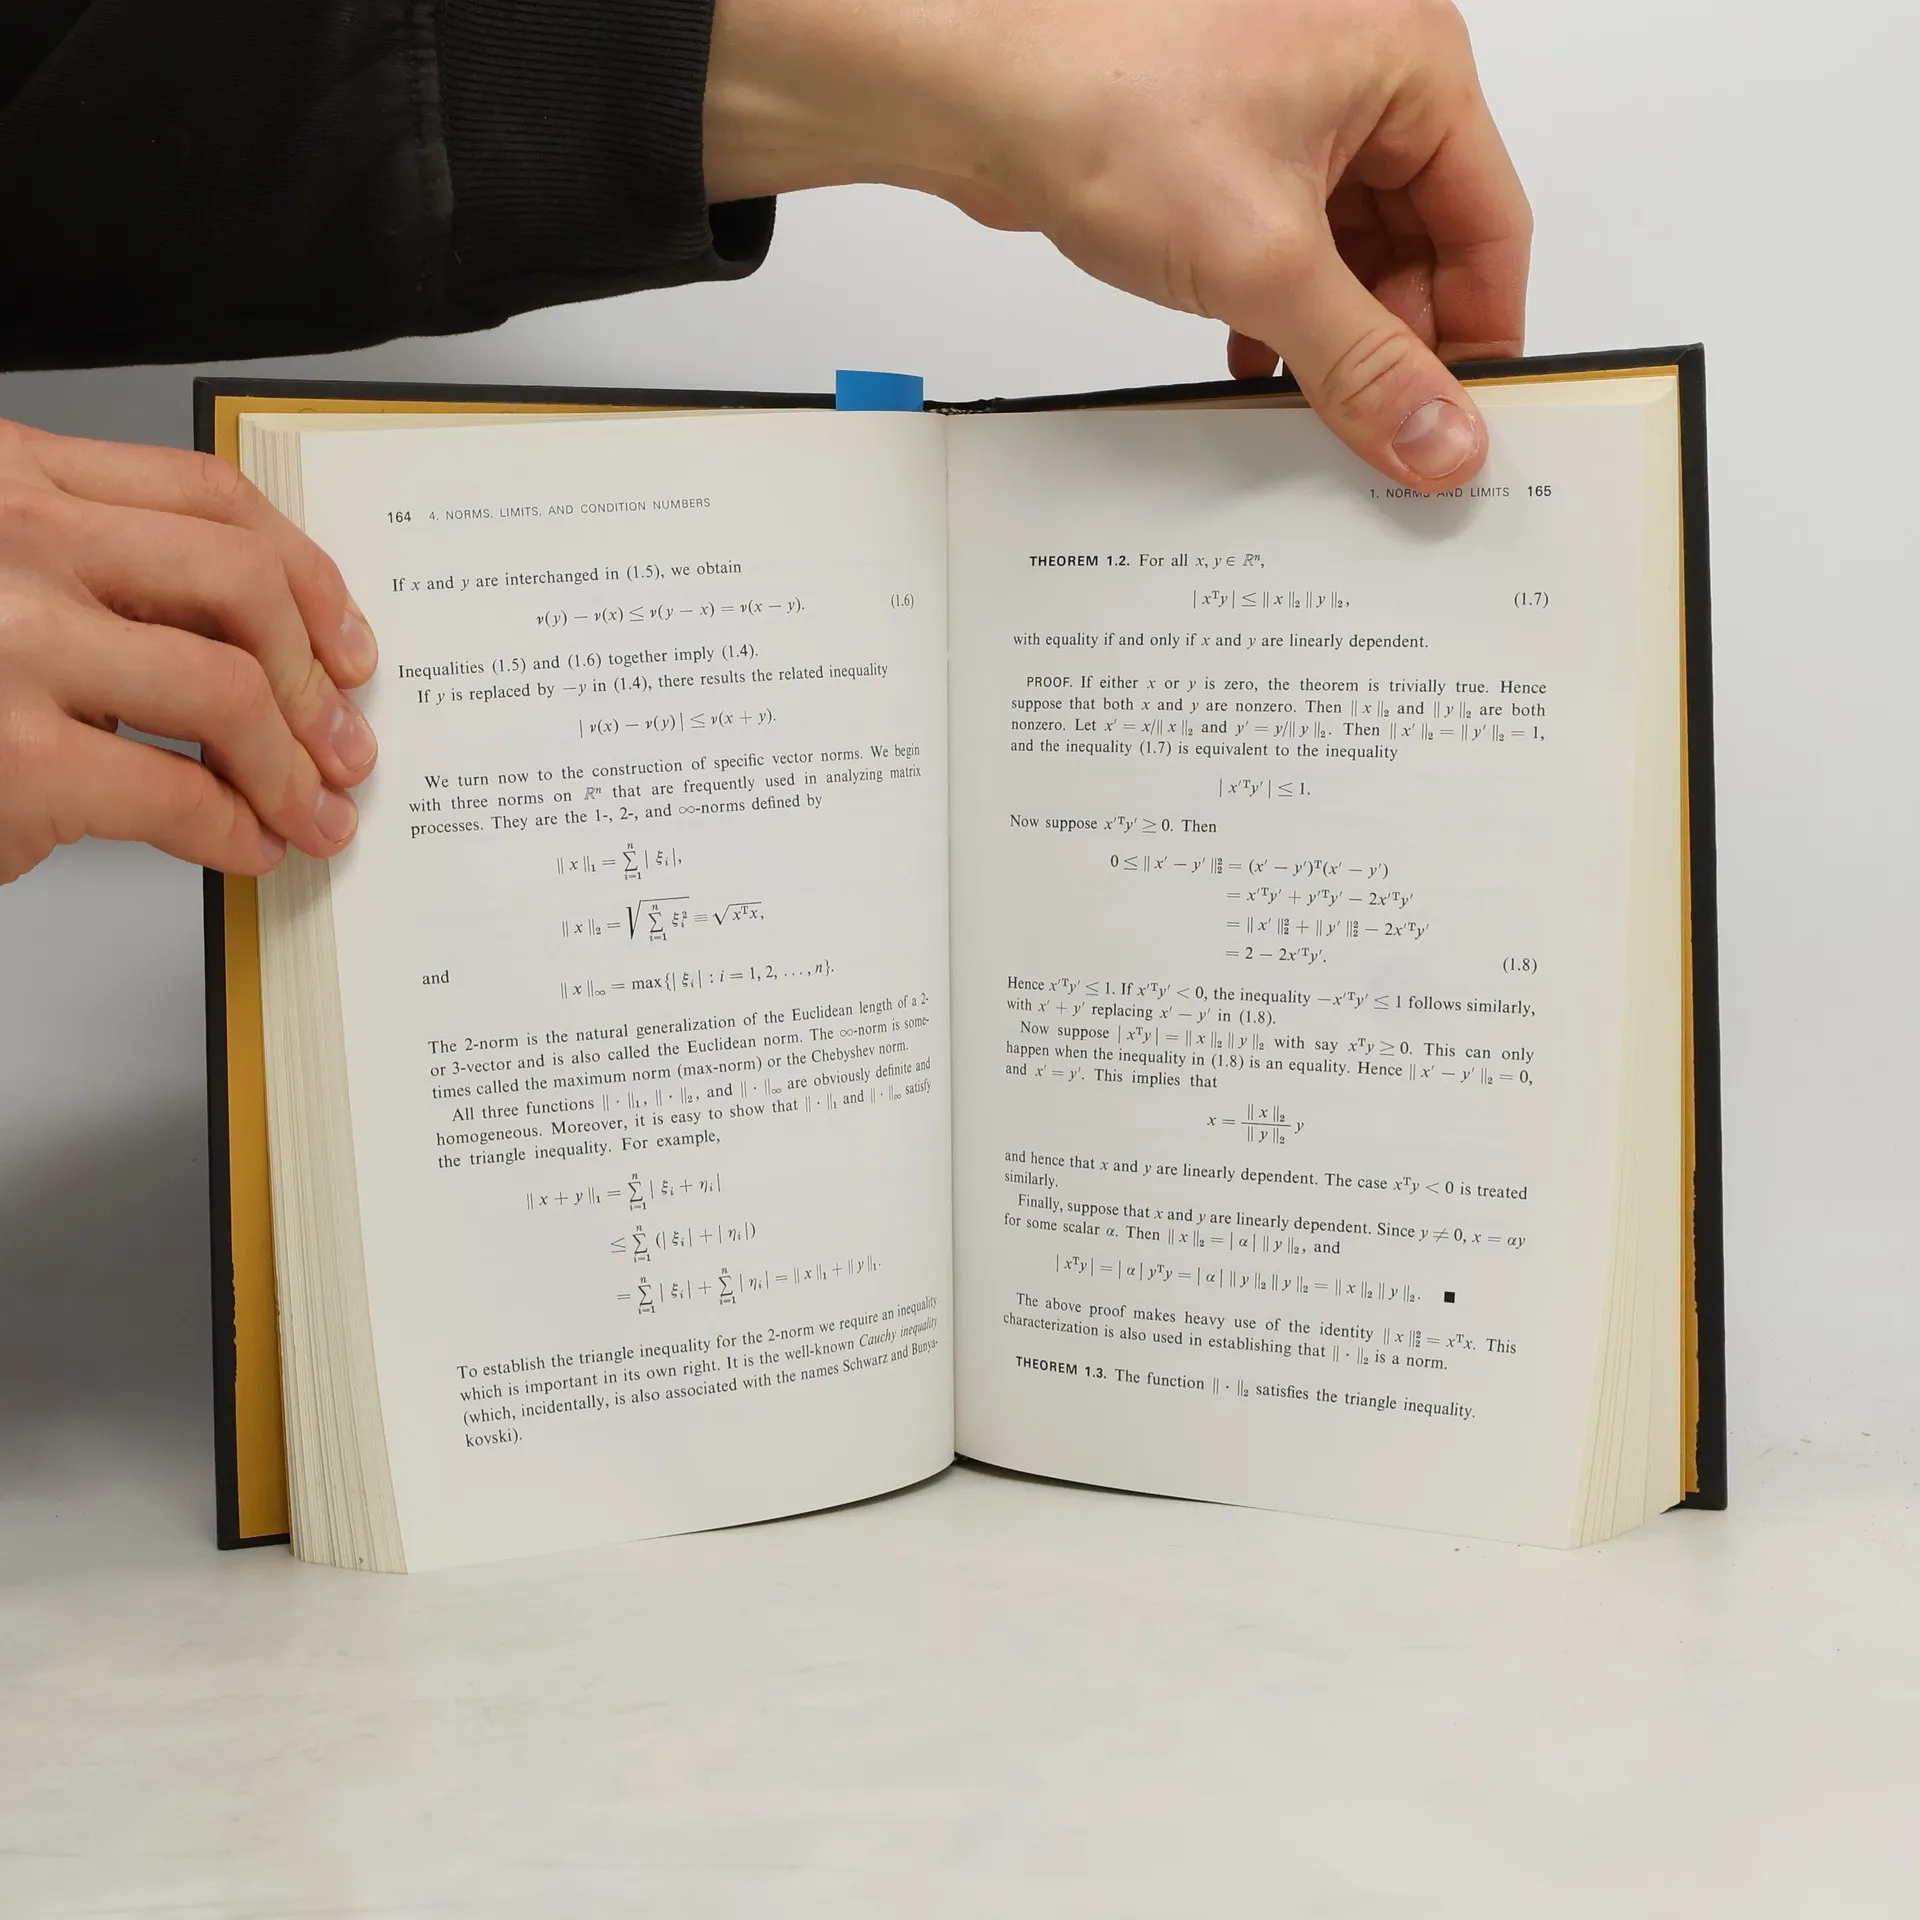 164 4. NORMS, LIMITS, AND CONDITION NUMBERS
If x and y are interchanged in (1.5), we obtain
ν(y) − ν(x) ≤ ν(y − x) = ν(x − y). (1.6)
Inequalities (1.5) and (1.6) together imply (1.4).
If y is replaced by −y in (1.4), there results the related inequality
| ν(x) − ν(y) | ≤ ν(x + y).
We turn now to the construction of specific vector norms. We begin
with three norms on ℝⁿ that are frequently used in analyzing matrix
processes. They are the 1-, 2-, and ∞-norms defined by
‖ x ‖₁ = ∑ⁿᵢ₌₁ | ξᵢ |,
‖ x ‖₂ = √(∑ⁿᵢ₌₁ ξᵢ²) ≡ √(xᵀx),
and
‖ x ‖∞ = max{| ξᵢ | : i = 1, 2, . . . , n}.
The 2-norm is the natural generalization of the Euclidean length of a 2-
or 3-vector and is also called the Euclidean norm. The ∞-norm is some-
times called the maximum norm (max-norm) or the Chebyshev norm.
All three functions ‖ · ‖₁, ‖ · ‖₂, and ‖ · ‖∞ are obviously definite and
homogeneous. Moreover, it is easy to show that ‖ · ‖₁ and ‖ · ‖∞ satisfy
the triangle inequality. For example,
‖ x + y ‖₁ = ∑ⁿᵢ₌₁ | ξᵢ + ηᵢ |
≤ ∑ⁿᵢ₌₁ (| ξᵢ | + | ηᵢ |)
= ∑ⁿᵢ₌₁ | ξᵢ | + ∑ⁿᵢ₌₁ | ηᵢ | = ‖ x ‖₁ + ‖ y ‖₁.
To establish the triangle inequality for the 2-norm we require an inequality
which is important in its own right. It is the well-known Cauchy inequality
(which, incidentally, is also associated with the names Schwarz and Bunya-
kovski).
1. NORMS AND LIMITS 165
THEOREM 1.2. For all x, y ∈ ℝⁿ,
| xᵀy | ≤ ‖ x ‖₂ ‖ y ‖₂, (1.7)
with equality if and only if x and y are linearly dependent.
PROOF. If either x or y is zero, the theorem is trivially true. Hence
suppose that both x and y are nonzero. Then ‖ x ‖₂ and ‖ y ‖₂ are both
nonzero. Let x′ = x/‖ x ‖₂ and y′ = y/‖ y ‖₂. Then ‖ x′ ‖₂ = ‖ y′ ‖₂ = 1,
and the inequality (1.7) is equivalent to the inequality
| x′ᵀy′ | ≤ 1.
Now suppose x′ᵀy′ ≥ 0. Then
0 ≤ ‖ x′ − y′ ‖₂² = (x′ − y′)ᵀ(x′ − y′)
= x′ᵀy′ + y′ᵀy′ − 2x′ᵀy′
= ‖ x′ ‖₂² + ‖ y′ ‖₂² − 2x′ᵀy′
= 2 − 2x′ᵀy′. (1.8)
Hence x′ᵀy′ ≤ 1. If x′ᵀy′ < 0, the inequality −x′ᵀy′ ≤ 1 follows similarly,
with x′ + y′ replacing x′ − y′ in (1.8).
Now suppose | xᵀy | = ‖ x ‖₂ ‖ y ‖₂ with say xᵀy ≥ 0. This can only
happen when the inequality in (1.8) is an equality. Hence ‖ x′ − y′ ‖₂ = 0,
and x′ = y′. This implies that
x = ‖ x ‖₂ / ‖ y ‖₂ y
and hence that x and y are linearly dependent. The case xᵀy < 0 is treated
similarly.
Finally, suppose that x and y are linearly dependent. Since y ≠ 0, x = αy
for some scalar α. Then ‖ x ‖₂ = | α | ‖ y ‖₂, and
| xᵀy | = | α | yᵀy = | α | ‖ y ‖₂ ‖ y ‖₂ = ‖ x ‖₂ ‖ y ‖₂. ■
The above proof makes heavy use of the identity ‖ x ‖₂² = xᵀx. This
characterization is also used in establishing that ‖ · ‖₂ is a norm.
THEOREM 1.3. The function ‖ · ‖₂ satisfies the triangle inequality.